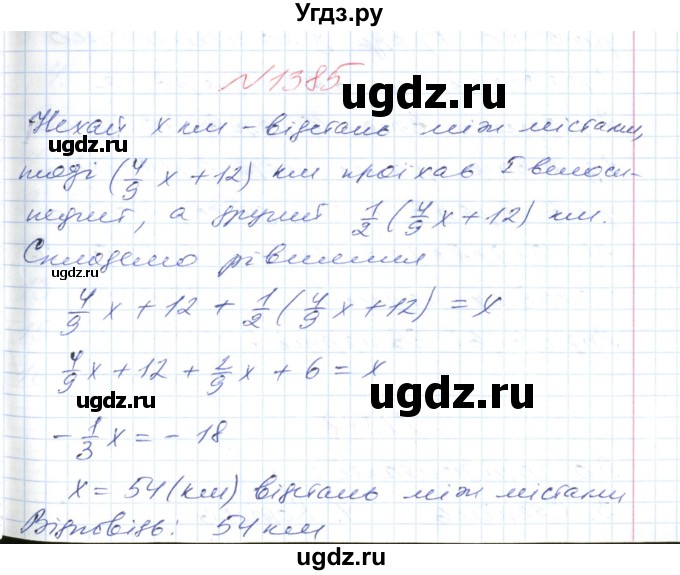 Угдз.ру
№1385
ugdz.ru
Нехай x км – відстань між містами,
ugdz.ru
тоді (4/9 x + 12) км проїхав I велоси-
педист, а другий 1/2 (4/9 x + 12) км.
ugdz.ru
Складемо рівняння
ugdz.ru
4/9 x + 12 + 1/2 (4/9 x + 12) = x
ugdz.ru
4/9 x + 12 + 2/9 x + 6 = x
ugdz.ru
- 1/3 x = - 18
ugdz.ru
x = 54 (км) відстань між містами
Відповідь: 54 км
ugdz.ru